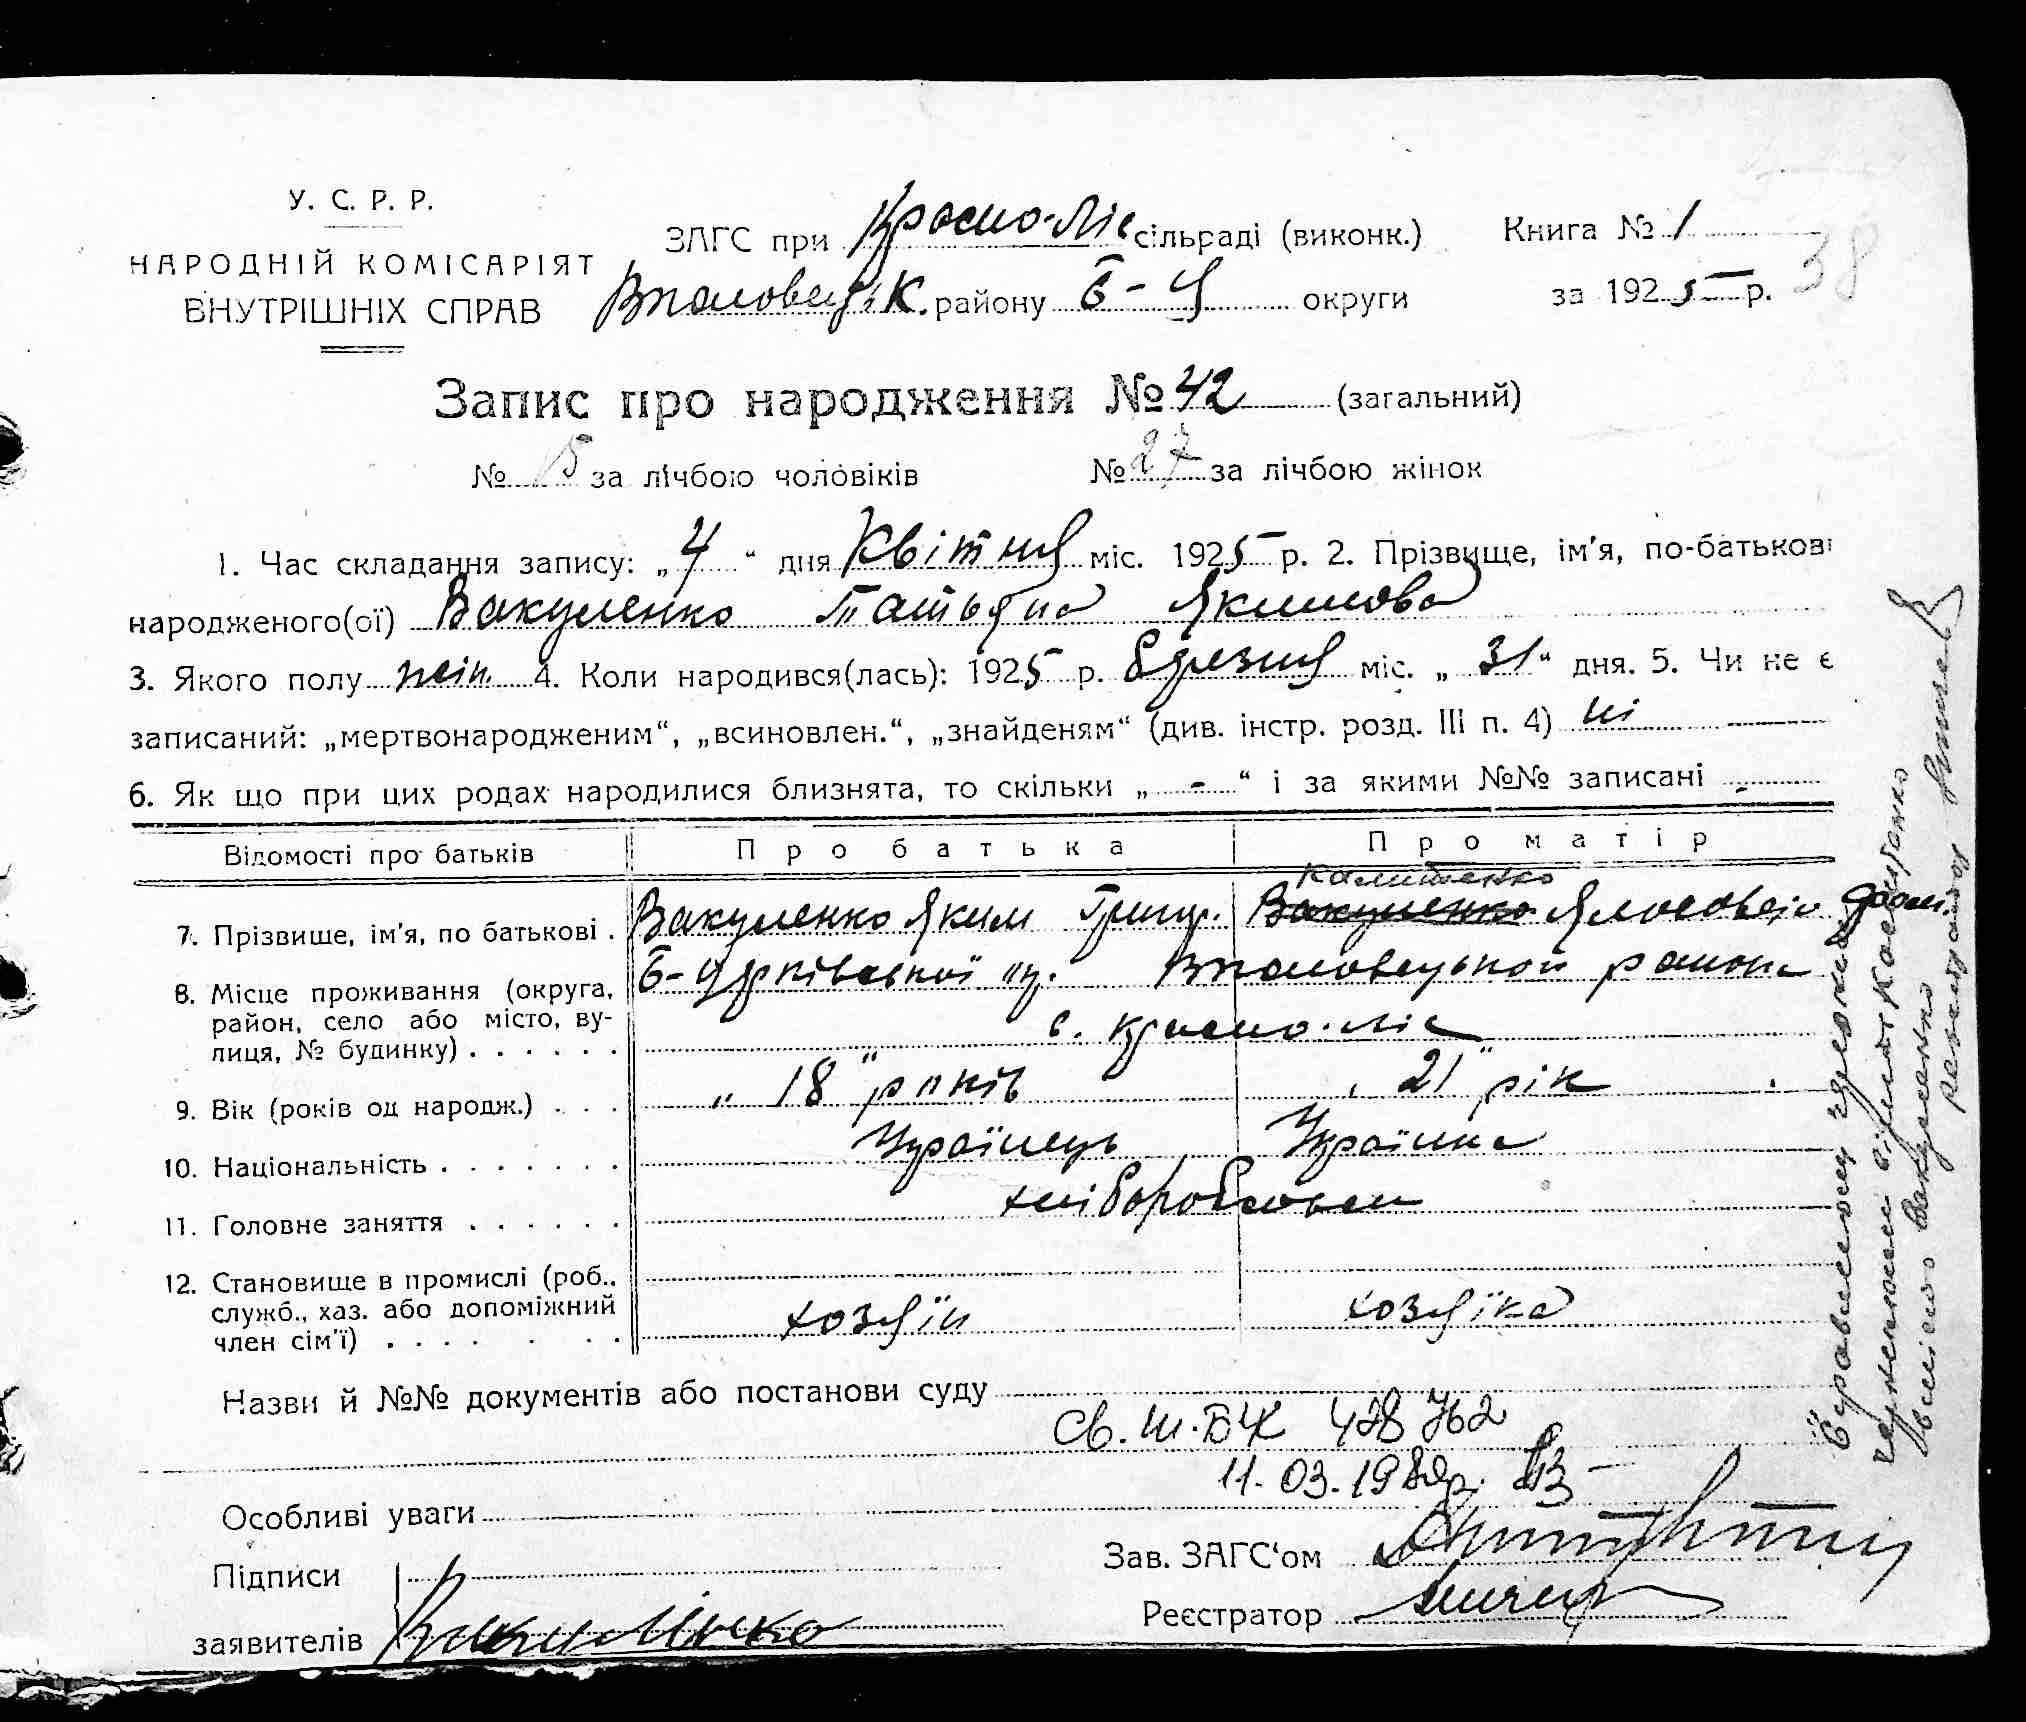 У. С. Р. Р.
НАРОДНІЙ КОМІСАРІЯТ
ВНУТРІШНІХ СПРАВ
ЗАГС при Красно-Ліс сільраді (виконк.)
району Б-Ц округи
Книга № 1
за 1925 р.
38
Запис про народження № 42 (загальний)
№ 15 за лічбою чоловіків № 27 за лічбою жінок
1. Час складання запису: „4“ дня Квітня міс. 1925 р. 2. Прізвище, ім'я, по-батькові
народженого(ої) Вакуленко Татьяна Якимова
3. Якого полу жін. 4. Коли народився(лась): 1925 р. березня міс. „31“ дня. 5. Чи не є
записаний: „мертвонародженим“, „всиновлен.“, „знайденям“ (див. інстр. розд. III п. 4) ні
6. Як що при цих родах народилися близнята, то скільки „ - “ і за якими №№ записані -
Відомості про батьків Про батька Про матір
7. Прізвище, ім'я, по батькові . Вакуленко Яким Григор. Вакуленко
8. Місце проживання (округа, район, село або місто, вулиця, № будинку) . . . . . .
Б-Церківської ок. района
с. Красно-Ліс
9. Вік (років од народж.) . . . „18“ років „21“ рік
10. Національність . . . . . . . Українець Українка
11. Головне заняття . . . . . .
12. Становище в промислі (роб., служб., хаз. або допоміжний член сім'ї) . . . . . . .
хозяїн хозяїка
Назви й №№ документів або постанови суду
Св. III-БК 478762
11.03.1989р.
Особливі уваги
Підписи
заявителів Вакуленко
Зав. ЗАГС‘ом
Реєстратор